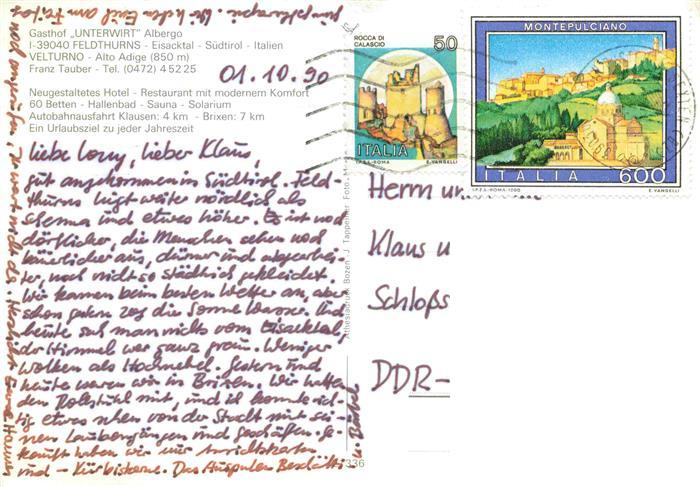 Gasthof „UNTERWIRT" Albergo
I-39040 FELDTHURNS - Eisacktal - Südtirol - Italien
VELTURNO - Alto Adige (850 m)
Franz Tauber - Tel. (0472) 45225
Neugestaltetes Hotel - Restaurant mit modernem Komfort
60 Betten - Hallenbad - Sauna - Solarium
Autobahnausfahrt Klausen: 4 km - Brixen: 7 km
Ein Urlaubsziel zu jeder Jahreszeit
01.10.90
lieber Klaus,
gut angekommen in Südtirol. Feld-
thurns liegt weiter nördlich als
Schenna und etwas höher. Es ist noch
dörflicher, die Menschen sehen noch
bäuerlicher aus, dünner und ausgearbei-
teter, noch nicht so städtisch gekleidet.
Wir kamen beim besten Wetter an, aber
schon gestern zog die Sonne Wasser. Und
heute sah man nichts vom Eisacktal,
der Himmel war ganz grau. Weniger
Wolken als Hochnebel. Gestern und
heute waren wir in Brixen. Wir hatten
den Rollstuhl mit, und ich konnte rich-
tig etwas sehen von der Stadt mit sei-
nen Laubengängen und Geschäften. Ge-
kauft haben wir nur
und - Kürbiskerne. Das Auspulen
ROCCA DI
CALASCIO
50
ITALIA
I.P.Z.S.-ROMA
E. VANGELLI
MONTEPULCIANO
ITALIA
600
I.P.Z.S.-ROMA-1990
E. VANGELLI
Herrn un
Klaus u
Schloßs
DDR-
Athesiadruck Bozen - J. Tappeiner Foto
336